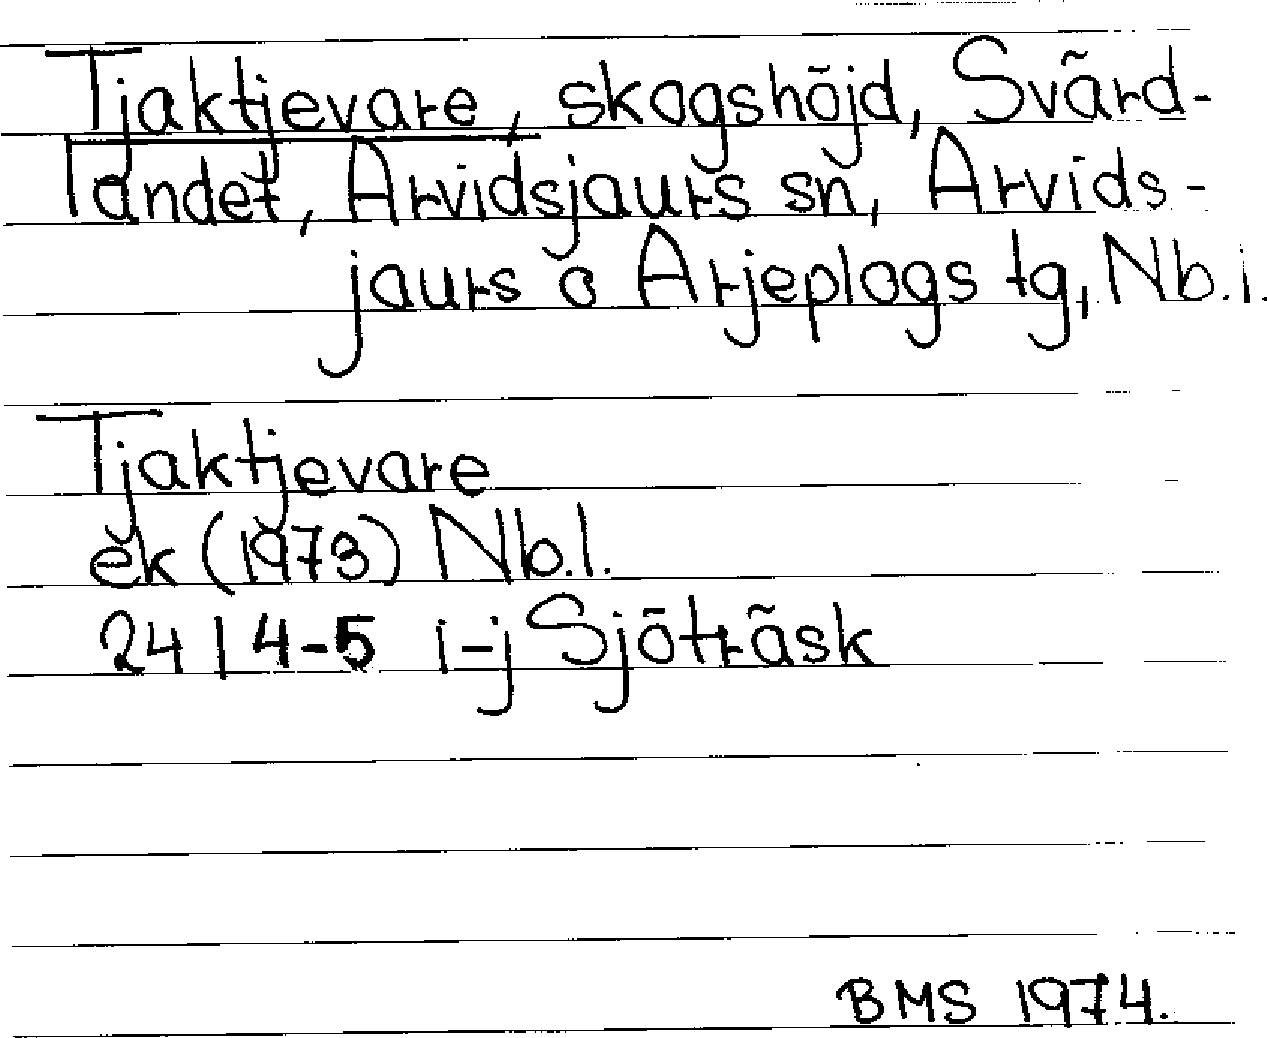 Tjaktjevare, skogshöjd, Svärd-
landet, Arvidsjaurs sn, Arvids-
jaurs o Arjeplogs tg, Nb.l.
Tjaktjevare
ek (1973) Nb.l.
24 I 4-5 i-j Sjöträsk
BMS 1974.